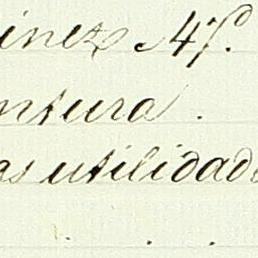 inez
ntura.
as utilidad